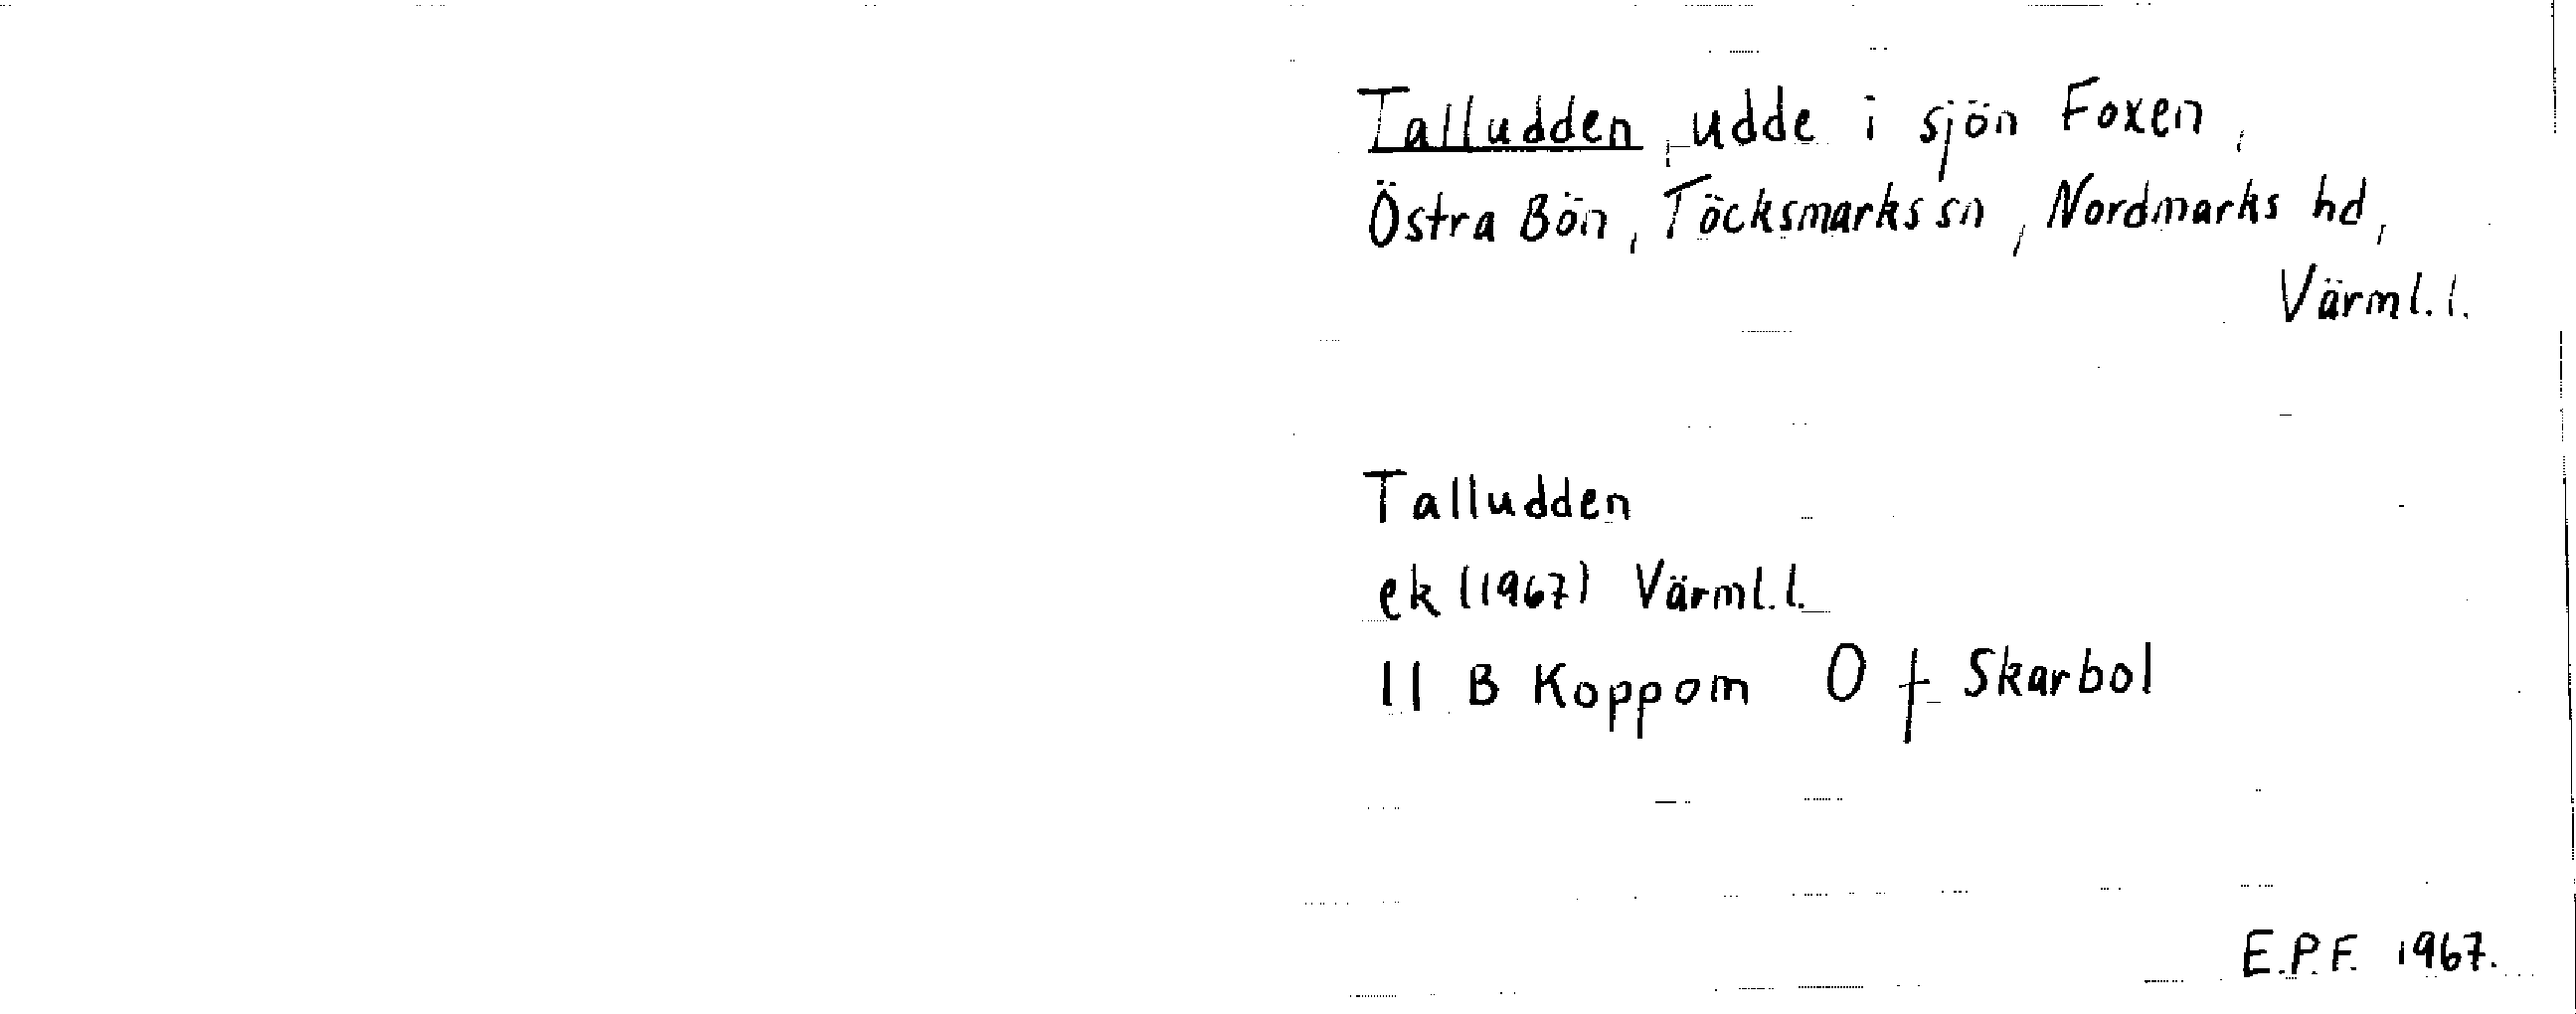 Talludden, udde i sjön Foxen,
Östra Bön, Töcksmarks sn, Nordmarks hd,
Värml. l.
Talludden
ek (1967) Värml. l.
11 B Koppom 0 f Skarbol
E.P.F. 1967.